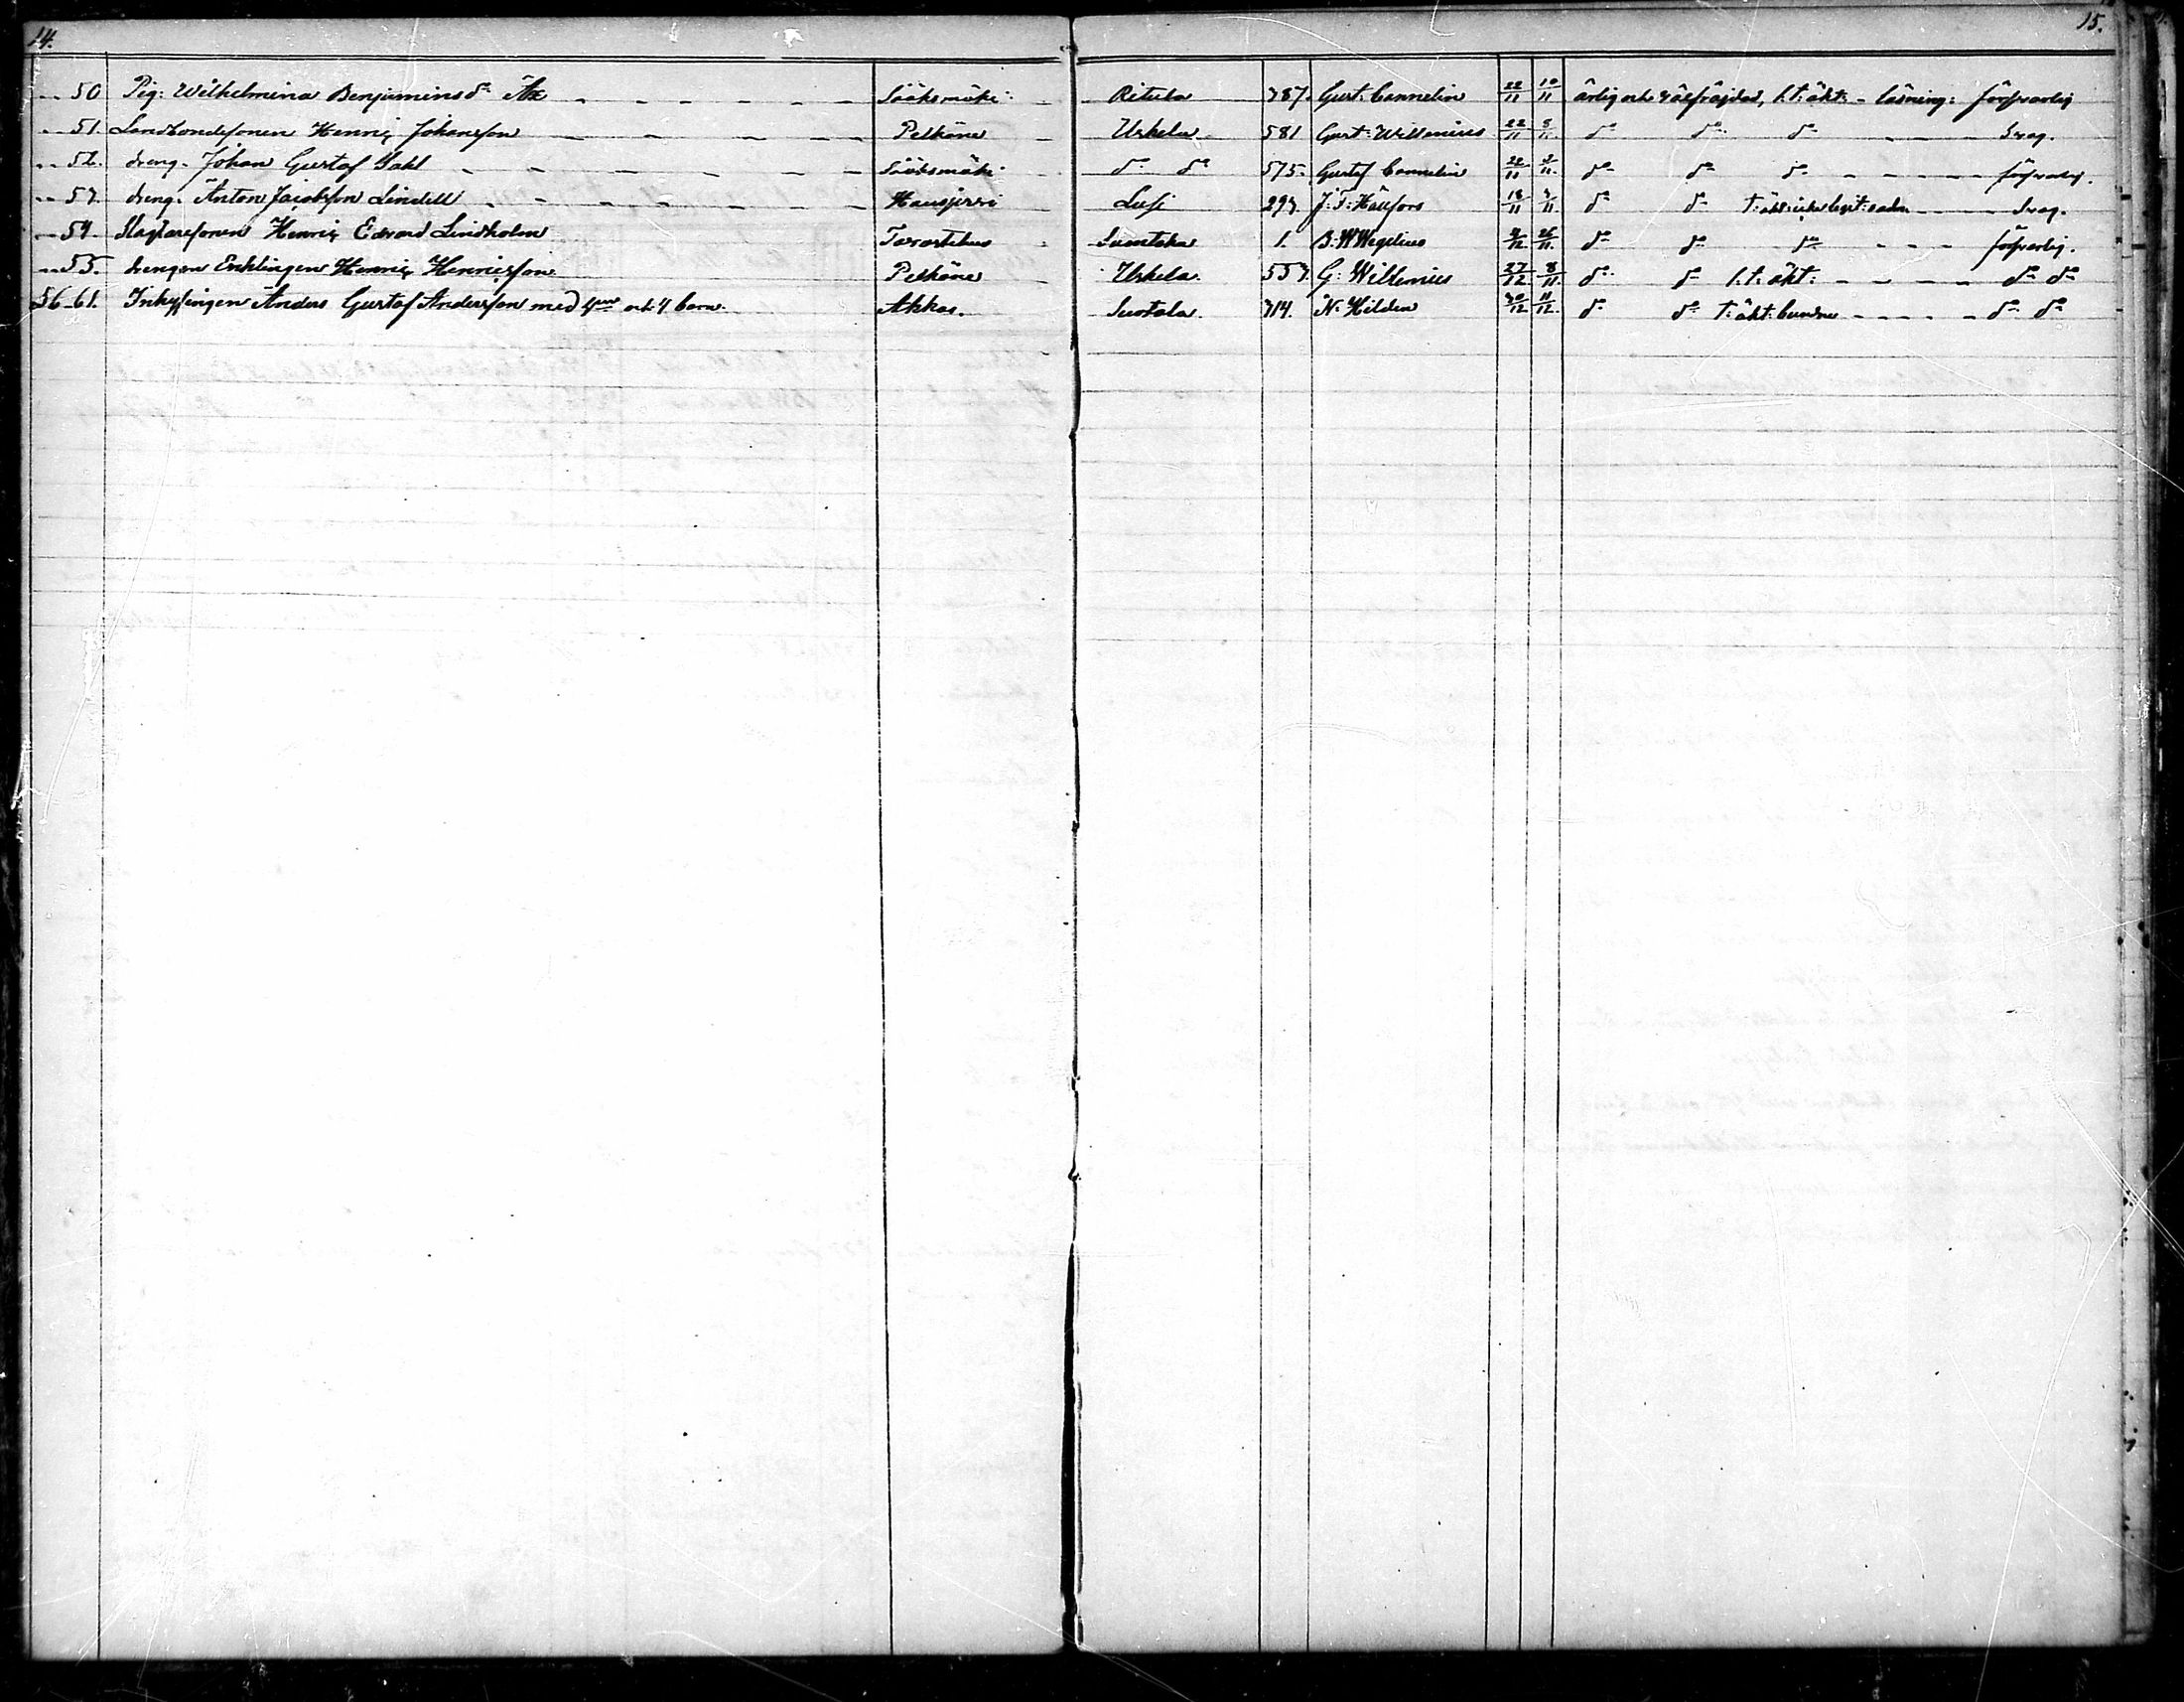 14. 15.
50 Pig: Wilhelmina Benjaminsdr Ax Sääksmäki Ritula 387. Gust: Cannelin 22/11 10/11 ärlig och välfräjdad, l.t: äkt: - läsning: försvarlig
51. Landbondesonen Henric Johansson Pelkäne Urkela 581 Gust: Willenius 22/11 8/11 do do do svag.
52. dreng. Johan Gustaf Dahl Sääksmäki do do 575. Gustaf Cannelin 22/11 3/11 do do do försvarlig.
53. dreng. Anton Jacobsson Lindell Hausjerwi Lusi 293. J: T: Hällfors 18/11 7/11 do do svag.
54. Slagtaresonen Henric Edvard Lindholm Tavastehus Luontaka 1. B: W Wegelius 9/12 26/11 do do do försvarlig.
55. drengen Enklingen Henric Henricsson Pelkäne Urkela. 557. G: Willenius 27/12 8/11 do do l.t: äkt: do do
56-61. Inhysingen Anders Gustaf Andersson med hustru och 4 barn. Akkas. Suotala. 314. N: Hilden 30/12 11/12 do do t: äkt: bunden do do